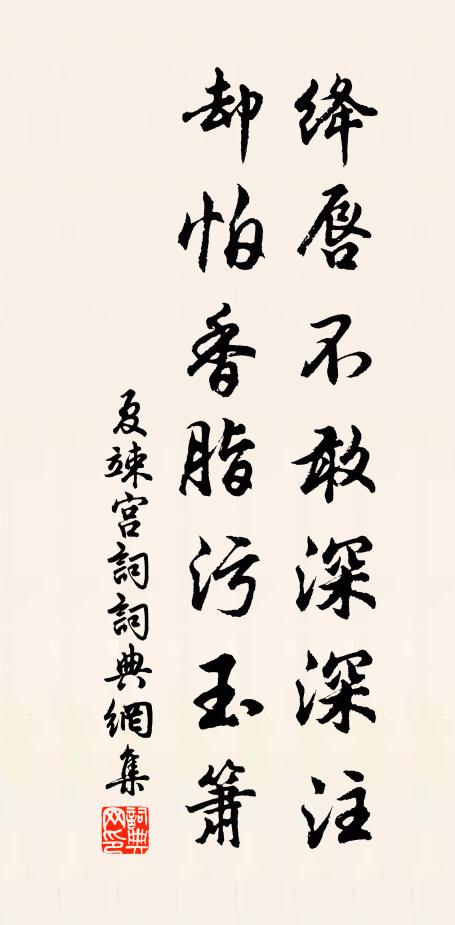 绛唇不敢深深注
却怕香脂污玉箫
夏竦宫詞詞典網集
詞典网印